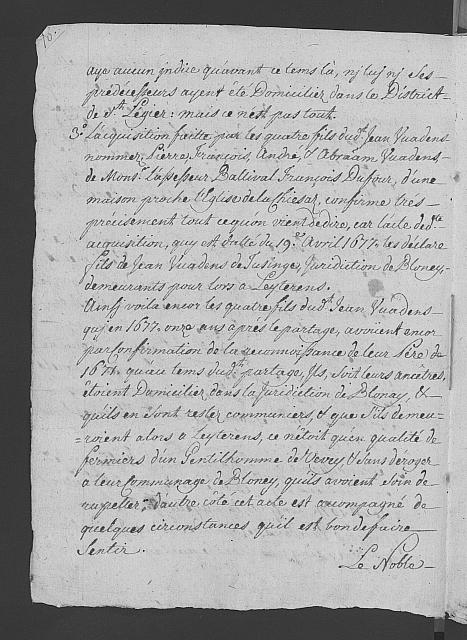 10.
aye aucun indice qu'avant ce tems la, nj luj nj Ses
prédécesseurs ayent été Domicilier dans le District
de St. Legier: mais ce n'est pas tout.
3.o L'acquisition faitte par les quatre fils dudt. Jean Vuadens
nommer, Pierre, François, André, & Abraam Vuadens
de Monsr. l'assesseur Ballival François Dufour, d'une
maison proche l'Eglise de la Chiesaz, confirme tres
précisement tout ce qu'on vient de dire, car l'acte de dte.
acquisition, quy est datté du 19.e Avril 1677. les déclare
fils de Jean Vuadens de Tusinge, Juridiction de Bloney
demeurants pour lors à Leyterens.
Ainsj voila encor les quatre fils dudt. Jean Vuadens
quj en 1677. onze ans après le partage, avoient encor
par confirmation de la reconnoissance de leur Père de
1671. qu'au tems dudt. partage, Ils, soit leurs ancêtres,
étoient Domicilier dans la Juridiction de Blonay, &
qu'ils en sont rester communiers, & que s'ils demeu-
=roient alors à Leyterens, ce n'étoit qu'en qualité de
fermiers d'un Gentilhomme de Vevey, & sans déroger
a leur Communage de Bloney, qu'ils avoient soin de
rappeller, d'autre côté cet acte est accompagné de
quelques circonstances qu'il est bon de faire
Sentir.
Le Noble